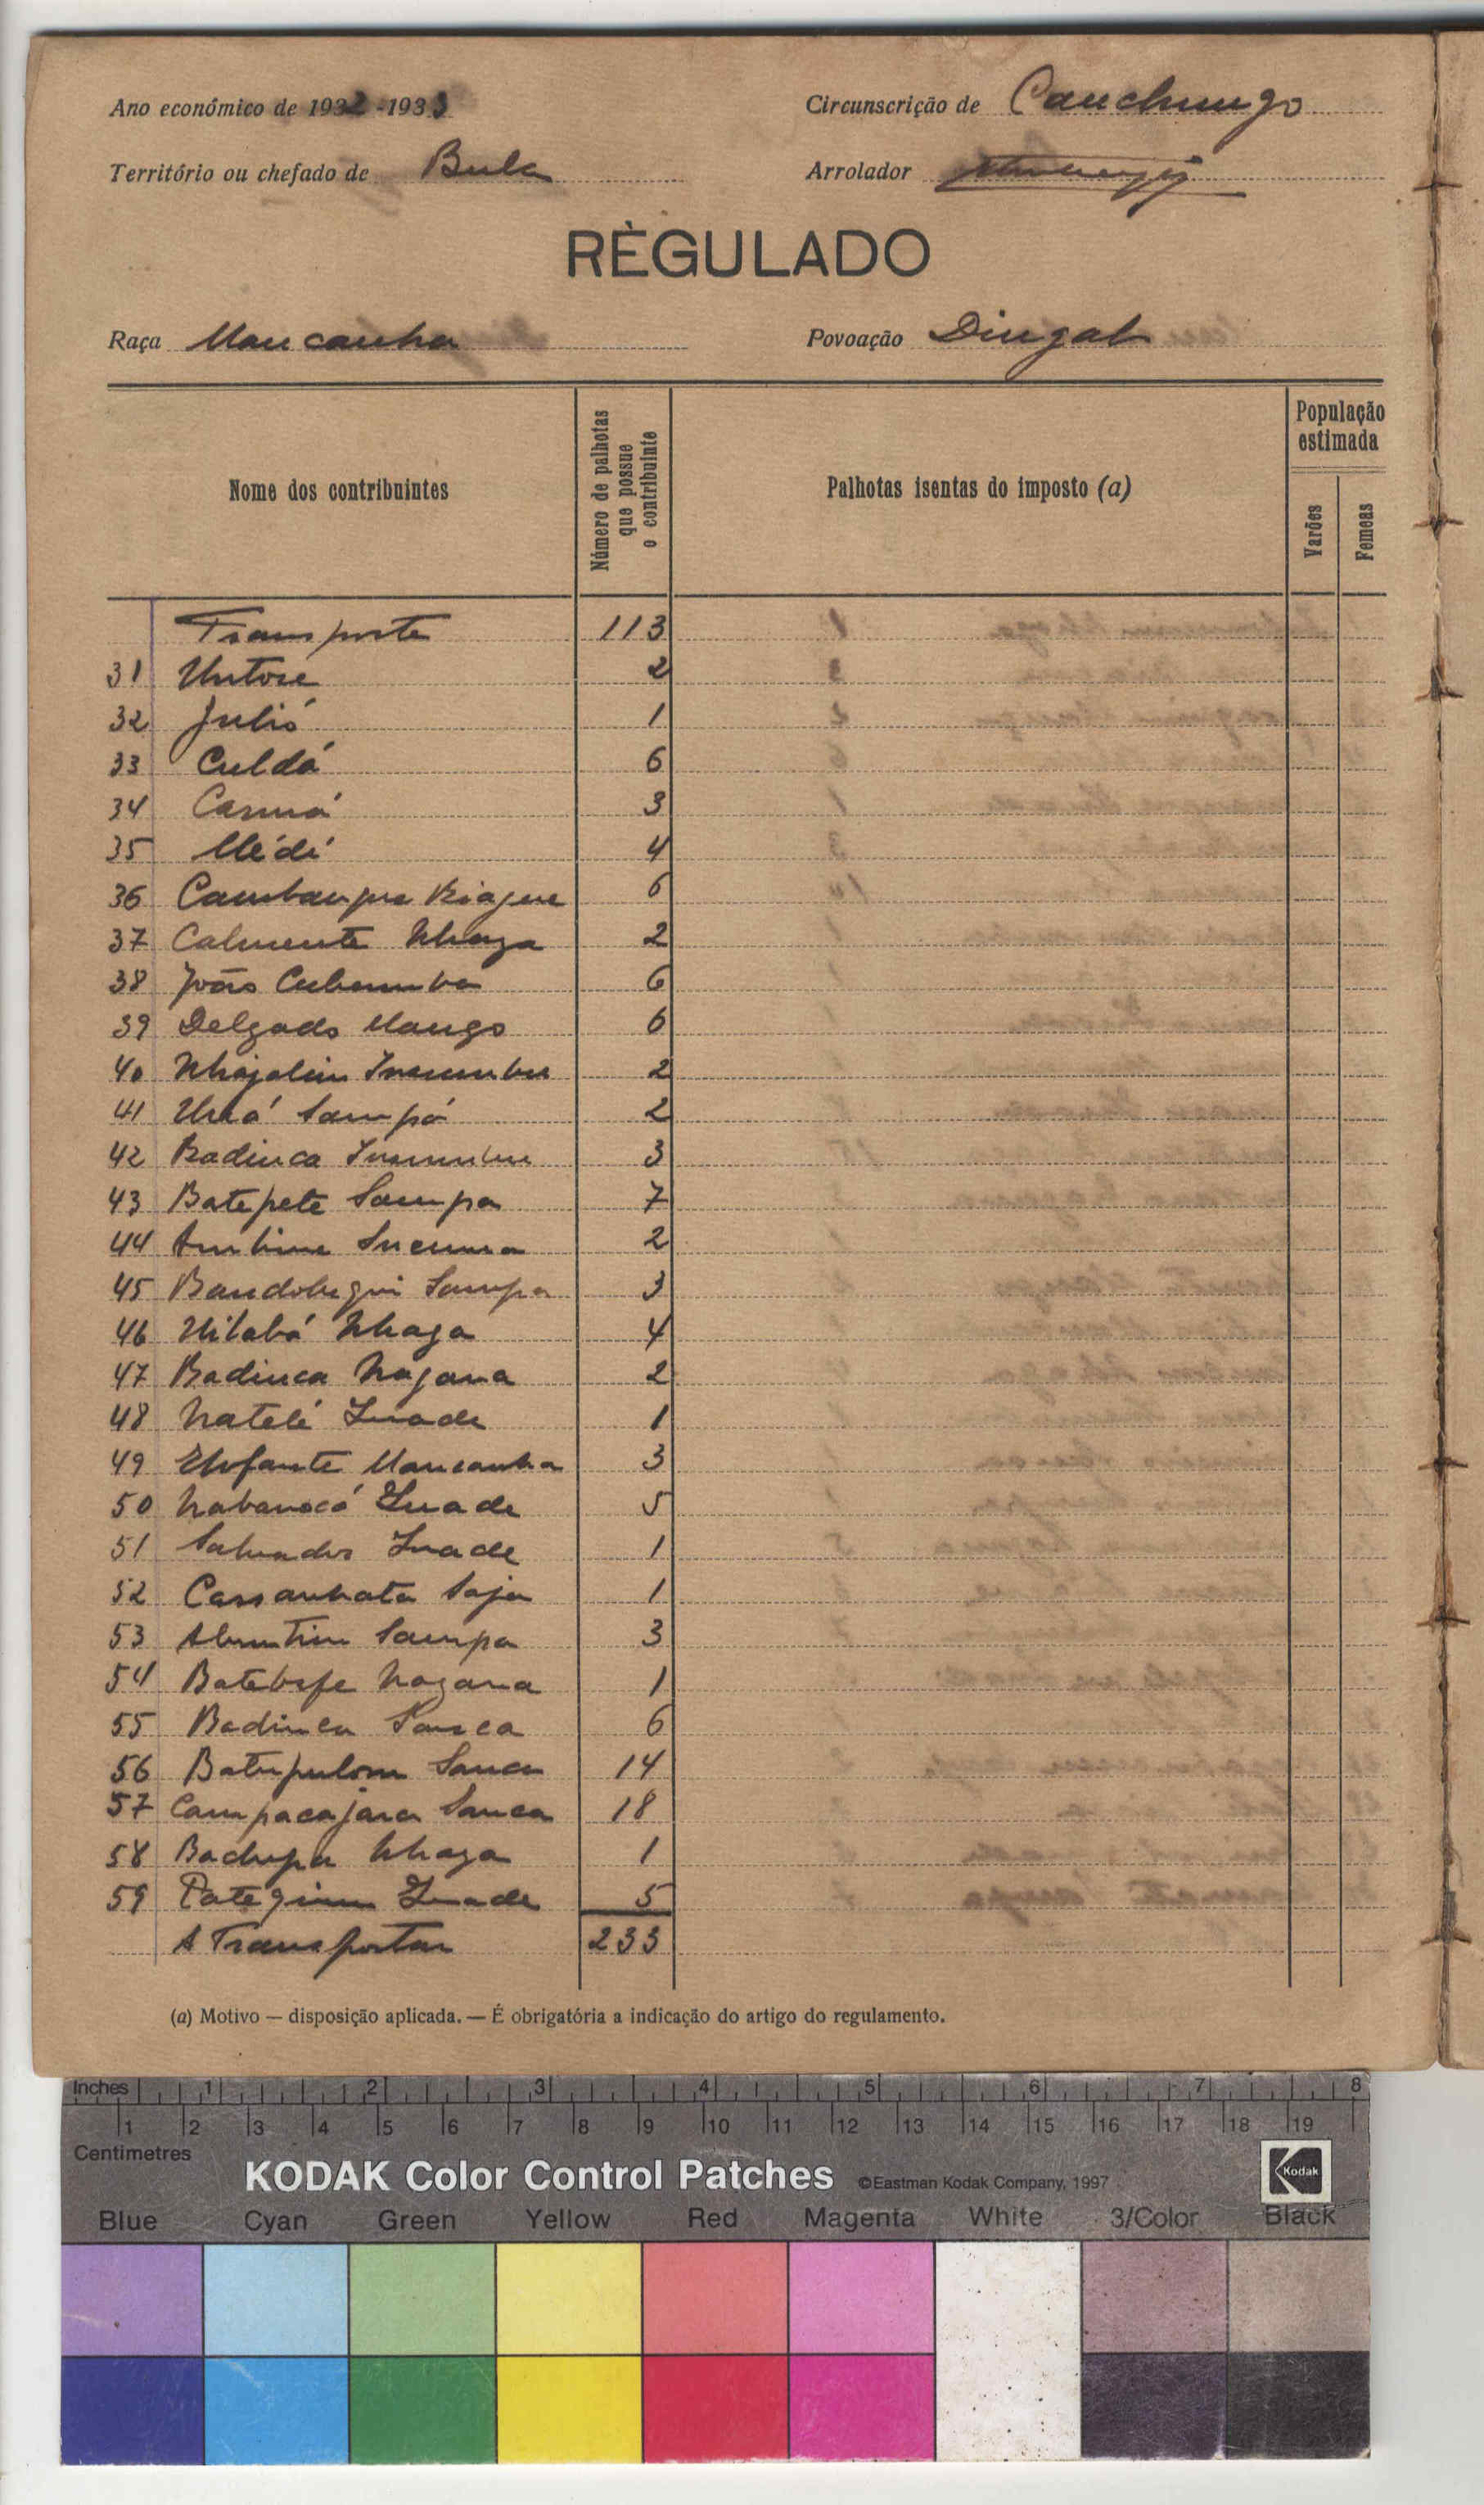 Ano económico de 1932-1933
Circunscrição de Canchungo
Território ou chefado de Bula
Arrolador
RÈGULADO
Raça Mancanha
Povoação Dingal
Nome dos contribuintes
Número de palhotas que possue o contribuinte
Palhotas isentas do imposto (a)
População estimada
Varões
Femeas
Transporte 113
31 Untore 2
32 Julió 1
33 Culdá 6
34 Camá 3
35 Médi 4
36 Biague 6
37 Calmente Nhaga 2
38 João Cubumba 6
39 Delgado Mango 6
40 2
41 Sampá 2
42 Badinca 3
43 Batepete Sampa 7
44 2
45 Sampa 3
46 Nitabá Nhaga 4
47 Badinca Nagana 2
48 Natelé Inade 1
49 Elefante Mancanha 3
50 Inade 5
51 Salvador Inade 1
52 Cassanhata Saja 1
53 Sampa 3
54 Nagana 1
55 Badinca Sanca 6
56 Sanca 14
57 Campacajara Sanca 18
58 Nhaga 1
59 Inade 5
A Transportar 233
(a) Motivo — disposição aplicada. — É obrigatória a indicação do artigo do regulamento.
Inches 1 2 3 4 5 6 7 8
1 2 3 4 5 6 7 8 9 10 11 12 13 14 15 16 17 18 19
Centimetres
KODAK Color Control Patches ©Eastman Kodak Company, 1997 Kodak
Blue Cyan Green Yellow Red Magenta White 3/Color Black